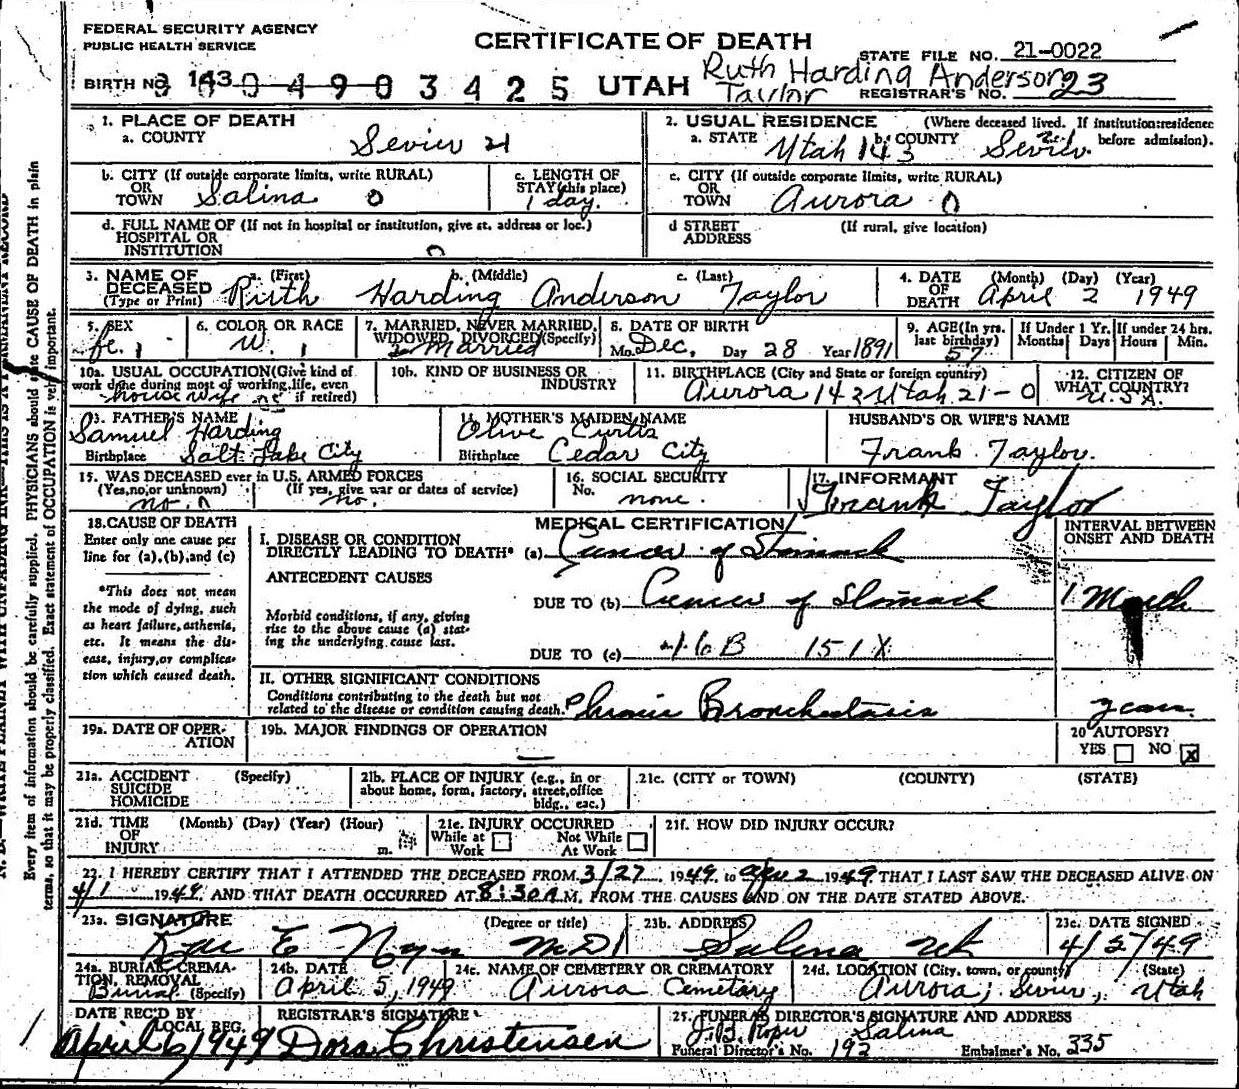 FEDERAL SECURITY AGENCY
PUBLIC HEALTH SERVICE
CERTIFICATE OF DEATH
STATE FILE NO. 21-0022
BIRTH NO. 143 0 4 9 0 3 4 2 5 UTAH
Ruth Harding Anderson
Taylor
REGISTRAR'S NO. 23
1. PLACE OF DEATH
a. COUNTY Sevier 21
2. USUAL RESIDENCE (Where deceased lived. If institution:residence before admission).
a. STATE Utah 143 b. COUNTY Sevier
b. CITY (If outside corporate limits, write RURAL)
OR
TOWN Salina 0
c. LENGTH OF
STAY (this place)
1 day.
c. CITY (If outside corporate limits, write RURAL)
OR
TOWN Aurora 0
d. FULL NAME OF (If not in hospital or institution, give st. address or loc.)
HOSPITAL OR
INSTITUTION 0
d STREET (If rural, give location)
ADDRESS
3. NAME OF DECEASED (Type or Print)
a. (First) b. (Middle) c. (Last)
Ruth Harding Anderson Taylor
4. DATE OF DEATH (Month) (Day) (Year)
April 2 1949
5. SEX
fe. 1
6. COLOR OR RACE
W. 1
7. MARRIED, NEVER MARRIED,
WIDOWED, DIVORCED (Specify)
2 Married
8. DATE OF BIRTH
Mo. Dec. Day 28 Year 1891
9. AGE (In yrs. last birthday)
57
If Under 1 Yr. Months Days
If under 24 hrs. Hours Min.
10a. USUAL OCCUPATION (Give kind of
work done during most of working life, even
if retired)
house wife
10b. KIND OF BUSINESS OR
INDUSTRY
11. BIRTHPLACE (City and State or foreign country)
Aurora 143 Utah 21-0
12. CITIZEN OF
WHAT COUNTRY?
U.S.A.
13. FATHER'S NAME
Samuel Harding
Birthplace Salt Lake City
14. MOTHER'S MAIDEN NAME
Olive Curtis
Birthplace Cedar City
HUSBAND'S OR WIFE'S NAME
Frank Taylor.
15. WAS DECEASED ever in U.S. ARMED FORCES
(Yes,no,or unknown) (If yes, give war or dates of service)
no. no.
16. SOCIAL SECURITY
No. none.
17. INFORMANT
Frank Taylor
18. CAUSE OF DEATH
Enter only one cause per
line for (a),(b),and (c)
*This does not mean
the mode of dying, such
as heart failure, asthenia,
etc. It means the dis-
ease, injury, or complica-
tion which caused death.
MEDICAL CERTIFICATION
INTERVAL BETWEEN
ONSET AND DEATH
I. DISEASE OR CONDITION
DIRECTLY LEADING TO DEATH* (a) Cancer of Stomach
ANTECEDENT CAUSES
DUE TO (b) Cancer of Stomach 1 Month
Morbid conditions, if any, giving
rise to the above cause (a) stat-
ing the underlying cause last.
DUE TO (c) 46B 151X
II. OTHER SIGNIFICANT CONDITIONS
Conditions contributing to the death but not
related to the disease or condition causing death. Chronic Bronchectasis years.
19a. DATE OF OPER-
ATION
19b. MAJOR FINDINGS OF OPERATION
20 AUTOPSY?
YES NO X
21a. ACCIDENT (Specify)
SUICIDE
HOMICIDE
21b. PLACE OF INJURY (e.g., in or
about home, form, factory, street,office
bldg., eac.)
21c. (CITY or TOWN) (COUNTY) (STATE)
21d. TIME (Month) (Day) (Year) (Hour)
OF
INJURY m.
21e. INJURY OCCURRED
While at Work Not While At Work
21f. HOW DID INJURY OCCUR?
22. I HEREBY CERTIFY THAT I ATTENDED THE DECEASED FROM 3/27 1949, to Apr 2 1949 THAT I LAST SAW THE DECEASED ALIVE ON
4/1 1949 AND THAT DEATH OCCURRED AT 8:30 A.M. FROM THE CAUSES AND ON THE DATE STATED ABOVE.
23a. SIGNATURE (Degree or title)
Rae E Noyes MD
23b. ADDRESS
Salina Ut
23c. DATE SIGNED
4/5/49
24a. BURIAL, CREMA-
TION, REMOVAL
Burial (Specify)
24b. DATE
April 5, 1949
24c. NAME OF CEMETERY OR CREMATORY
Aurora Cemetary
24d. LOCATION (City, town, or county) (State)
Aurora, Sevier, Utah
DATE REC'D BY
LOCAL REG.
April 6, 1949
REGISTRAR'S SIGNATURE
Dora Christensen
25. FUNERAL DIRECTOR'S SIGNATURE AND ADDRESS
Salina
Funeral Director's No. 192 Embalmer's No. 335
Every item of information should be carefully supplied. PHYSICIANS should state CAUSE OF DEATH in plain
terms, so that it may be properly classified. Exact statement of OCCUPATION is very important.